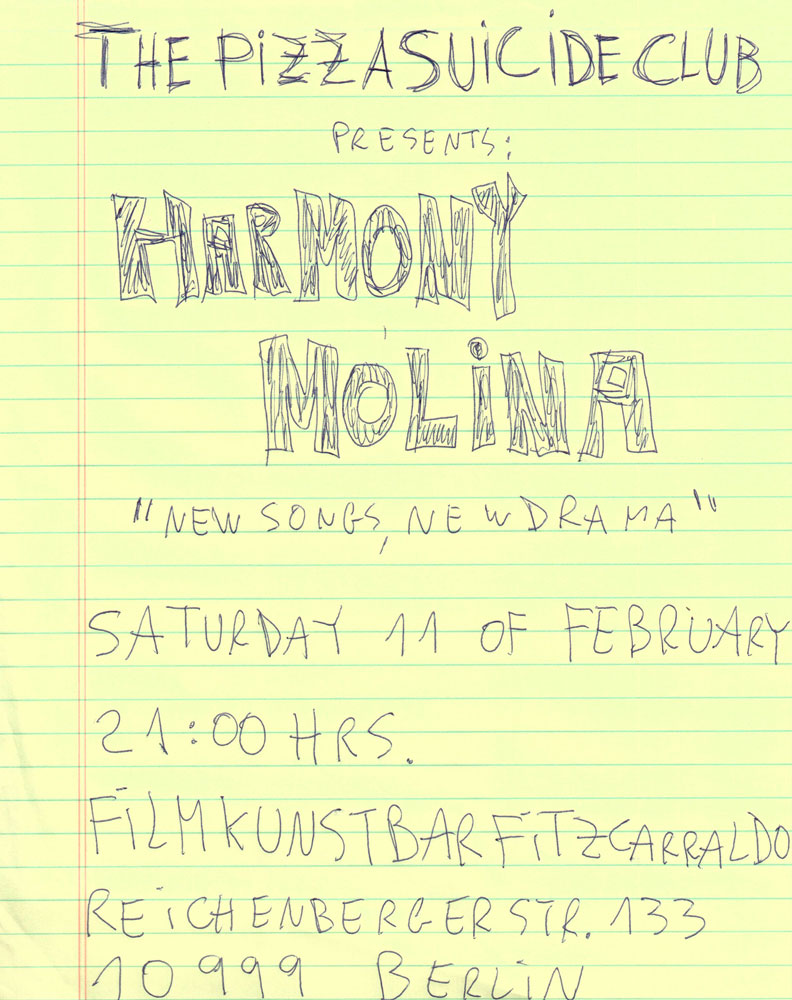 THE PiZZASUiCiDECLUB
PRESENTS:
HARMONY
MOLiNA
"NEW SONGS, NEW DRAMA"
SATURDAY 11 OF FEBRUARY
21:00 HRS.
FiLMKUNSTBARFiTZCARRALDO
REiCHENBERGERSTR. 133
10999 BERLiN